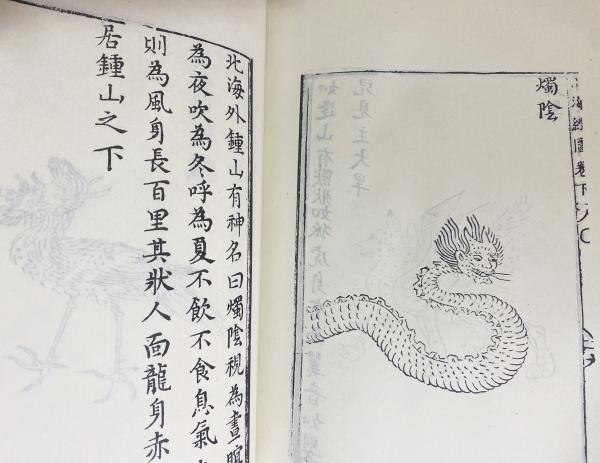 海經圖卷下
燭陰
北海外鍾山有神名曰燭陰視為晝
為夜吹為冬呼為夏不飲不食息氣
則為風身長百里其狀人面龍身赤
居鍾山之下